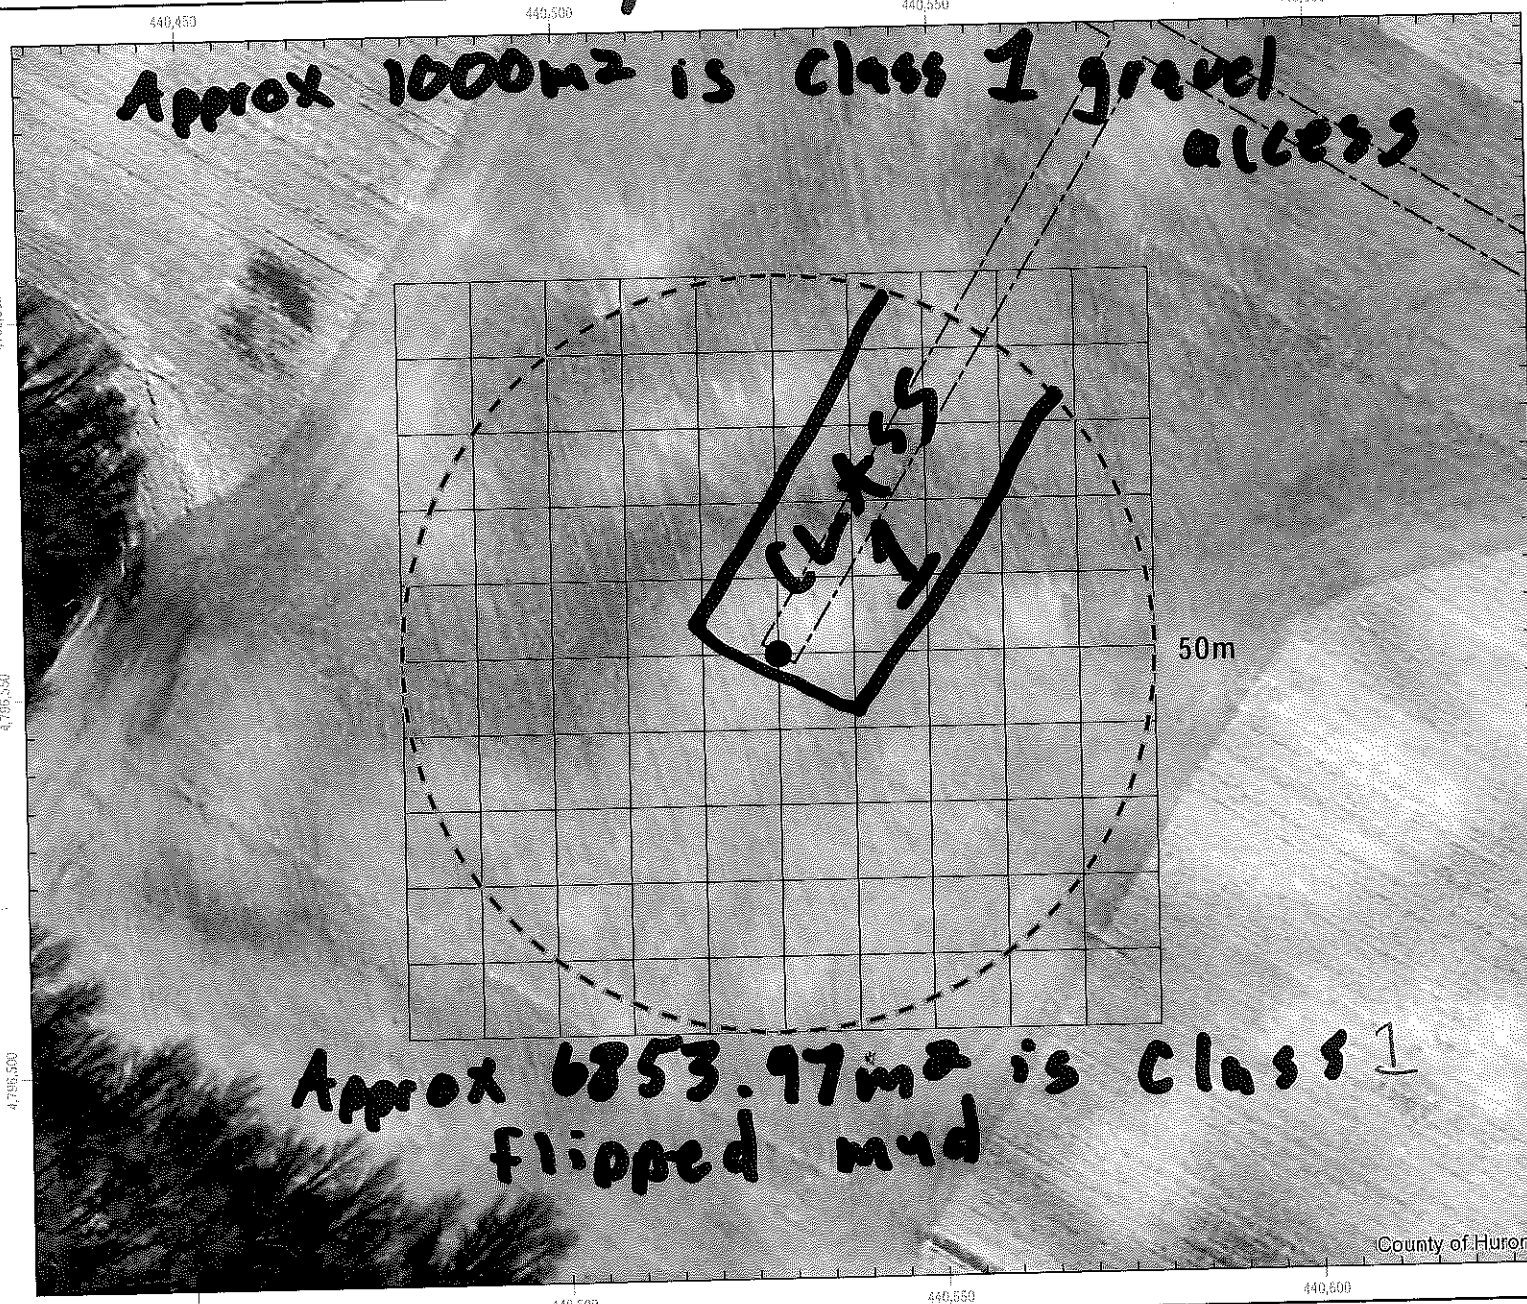 440,450
440,500
440,550
Approx 1000m2 is Class 1 gravel
alcess
CLASS
1
50m
4,796,550
4,796,500
Approx 6853.97m2 is Class 1
flipped mud
County of Huron
440,500
440,550
440,600